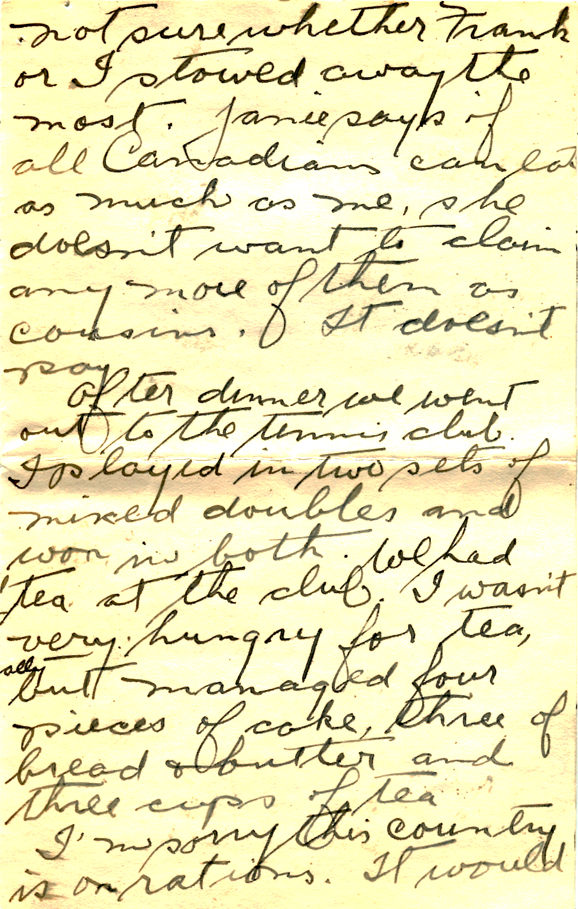 not sure whether Frank
or I stowed away the
most. Janie says if
all Canadians can eat
as much as me, she
doesn't want to claim
any more of them as
cousins. It doesn't
pay
After dinner we went
out to the tennis club.
I played in two sets of
mixed doubles and
won in both. We had
tea at the club. I wasn't
very hungry for tea,
but managed four
pieces of cake, three of
bread & butter and
three cups of tea
I'm sorry this country
is on rations. It would